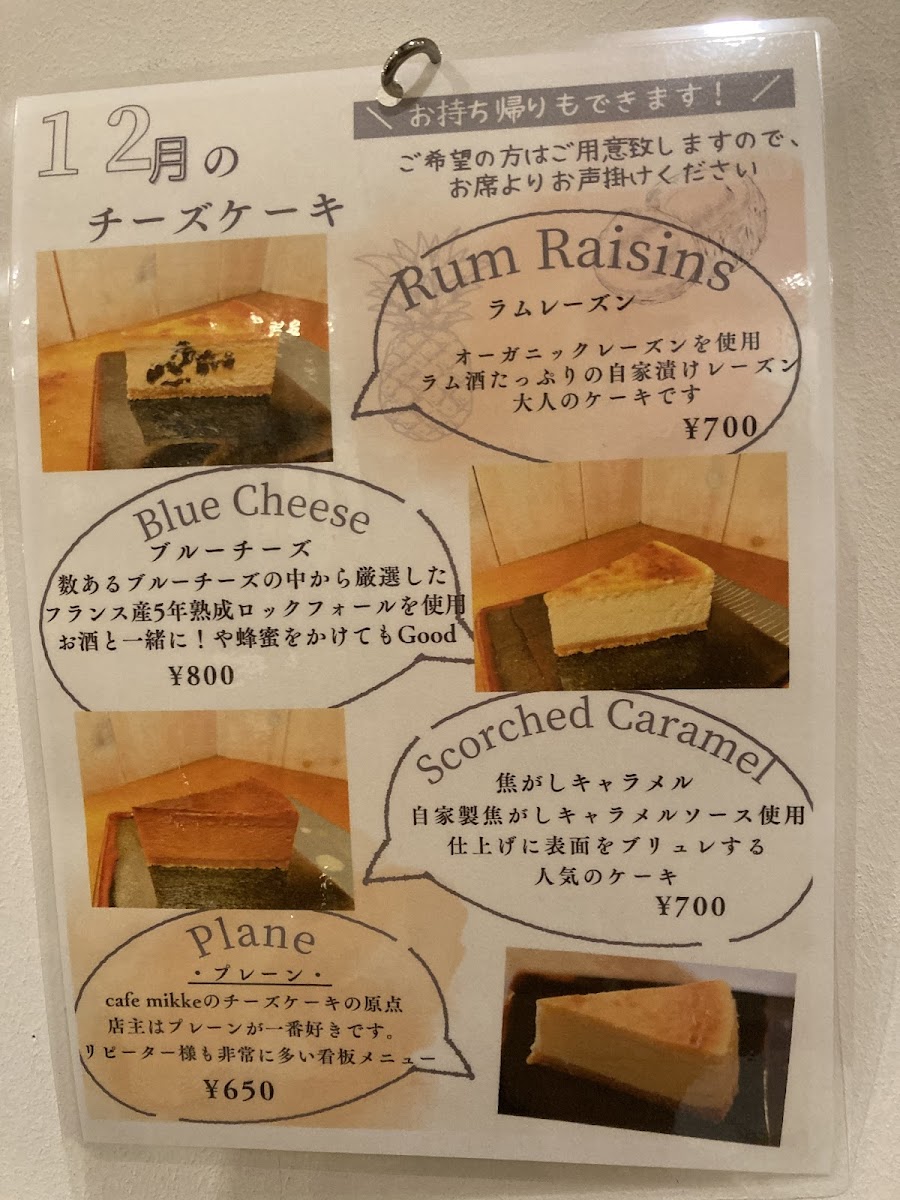 12月の
チーズケーキ
＼ お持ち帰りもできます！ ／
ご希望の方はご用意致しますので、
お席よりお声掛けください
Rum Raisins
ラムレーズン
オーガニックレーズンを使用
ラム酒たっぷりの自家漬けレーズン
大人のケーキです
¥700
Blue Cheese
ブルーチーズ
数あるブルーチーズの中から厳選した
フランス産5年熟成ロックフォールを使用
お酒と一緒に！や蜂蜜をかけてもGood
¥800
Scorched Caramel
焦がしキャラメル
自家製焦がしキャラメルソース使用
仕上げに表面をブリュレする
人気のケーキ
¥700
Plane
・プレーン・
cafe mikkeのチーズケーキの原点
店主はプレーンが一番好きです。
リピーター様も非常に多い看板メニュー
¥650